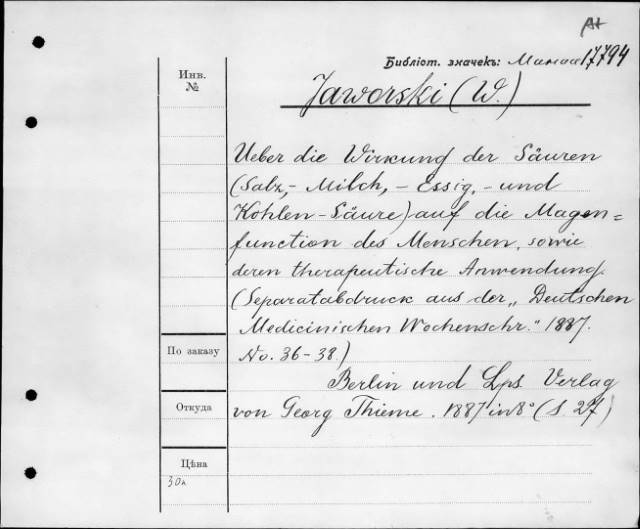 A+
Библіот. значекъ: 17794
Инв.
№
Jaworski (W.)
Ueber die Wirkung der Säuren
(Salz,- Milch,- Essig,- und
Kohlen-Säure) auf die Magen=
function des Menschen, sowie
deren therapeutische Anwendung.
(Separatabdruck aus der „Deutschen
Medicinischen Wochenschr." 1887.
По заказу
No. 36-38.)
Berlin und Lps Verlag
Откуда
von Georg Thieme. 1887 in 8° (S. 27)
Цѣна
30к